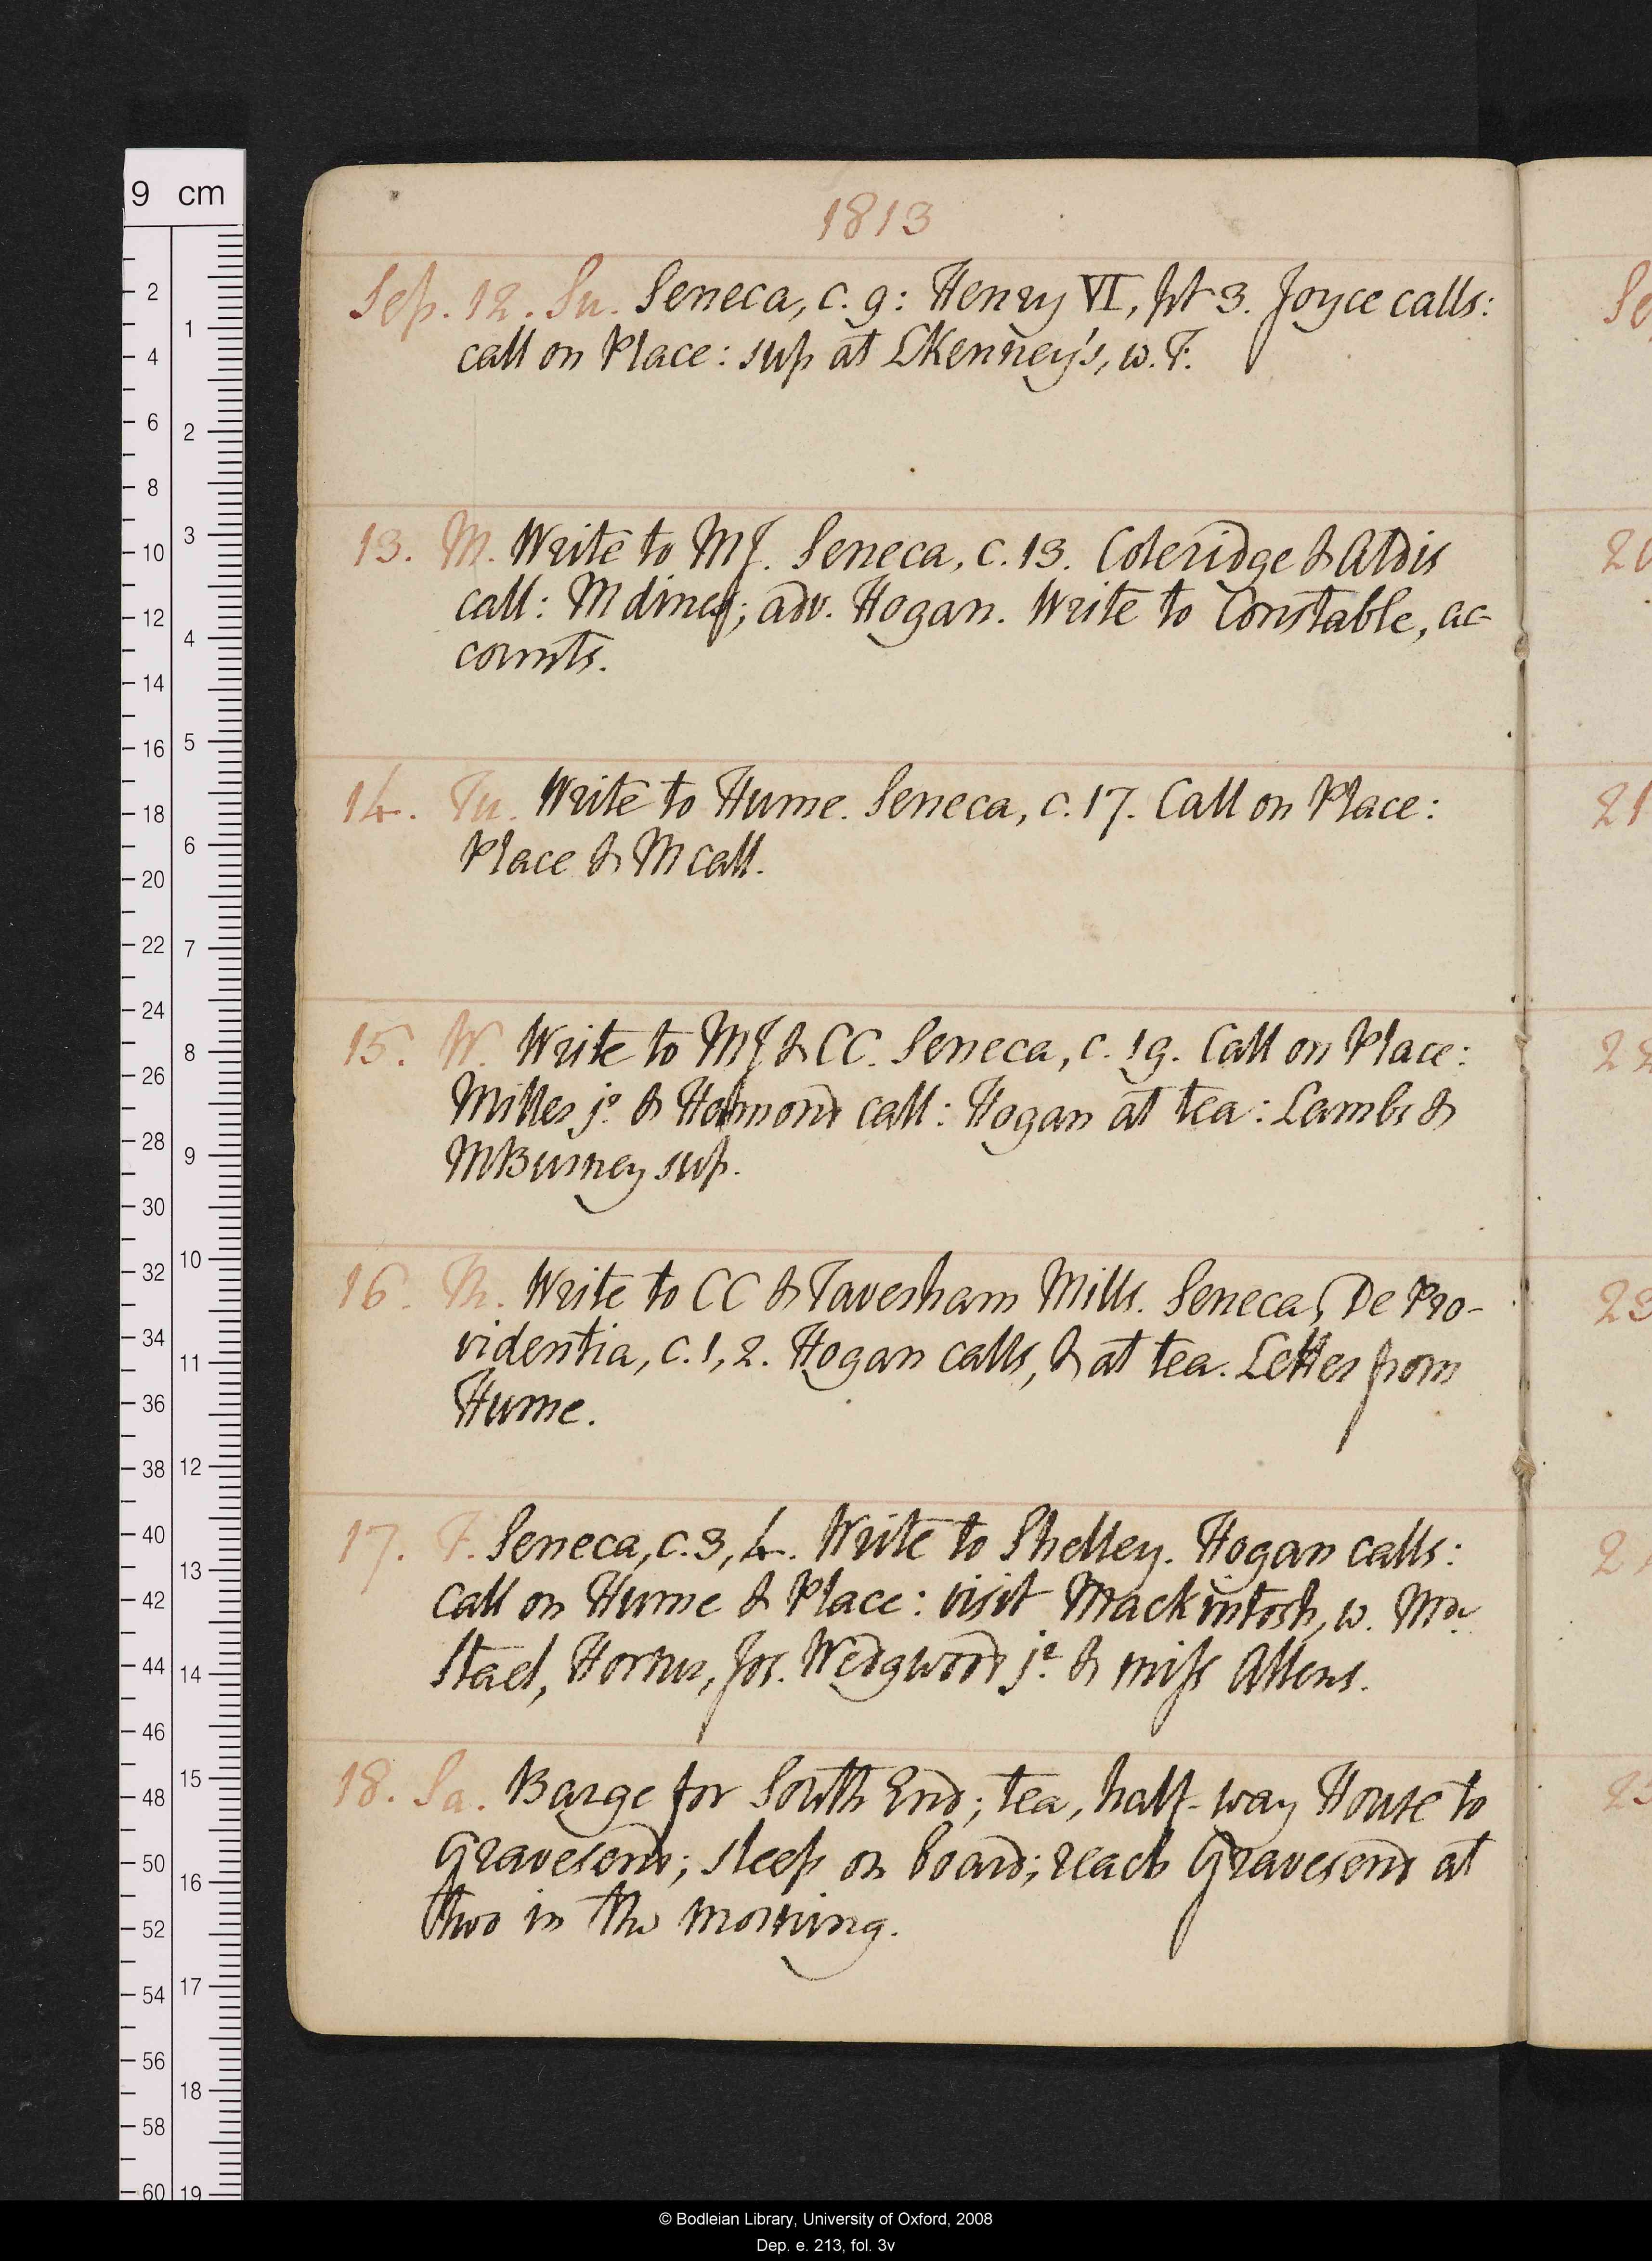 1813
Sep. 12. Su. Seneca, c. 9: Henry VI, pt 3. Joyce calls:
call on Place: sup at LKenney's, w. F.
13. M. Write to MJ. Seneca, c. 13. Coleridge & Aldis
call: M dines; adv. Hogan. Write to Constable, ac-
counts.
14. Tu. Write to Hume. Seneca, c. 17. Call on Place:
Place & M call.
15. W. Write to MJ & CC. Seneca, c. 19. Call on Place:
Miller jr & call: Hogan at tea: Lambs &
MBurney sup.
16. Th. Write to CC & Taversham Mills. Seneca, De Pro-
videntia, c. 1, 2. Hogan calls, & at tea. Letter from
Hume.
17. F. Seneca, c. 3, 4. Write to Shelley. Hogan calls:
call on Hume & Place: visit Mackintosh, w. Me
Stael, Horner, Jos. Wedgwood jr & miss Allens.
18. Sa. Barge for South End; tea, half-way House to
Gravesend; sleep on board; reach Gravesend at
two in the morning.
9 cm
2
4
6
8
10
12
14
16
18
20
22
24
26
28
30
32
34
36
38
40
42
44
46
48
50
52
54
56
58
60
1
2
3
4
5
6
7
8
9
10
11
12
13
14
15
16
17
18
19
© Bodleian Library, University of Oxford, 2008
Dep. e. 213, fol. 3v